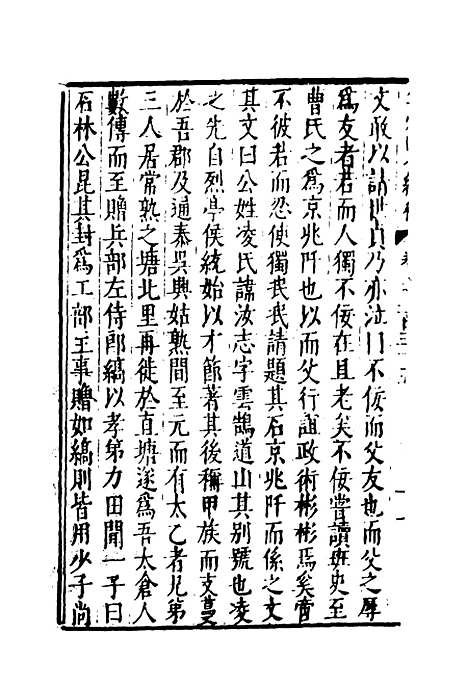 文敢以請世貞乃亦泣曰不佞而父友也而父之辱
為友者若而人獨不佞在且老矣不佞嘗讀班史至
曹氏之為京兆阡也以而父行誼政術彬彬焉奚啻
不彼若而忍使獨泯泯請題其石京兆阡而係之文
其文曰公姓凌氏諱汝志字雲鵠道山其別號也凌
之先自烈亭侯統始以才節著其後稱甲族而支蔓
於吾郡及通泰吳興姑熟間至元而有太乙者兄第
三人居常熟之塘北里再徙於直塘遂為吾太倉人
數傳而至贈兵部左侍郎縞以孝第力田聞一子曰
石林公昆其封為工部主事贈如縞則皆用少子尚